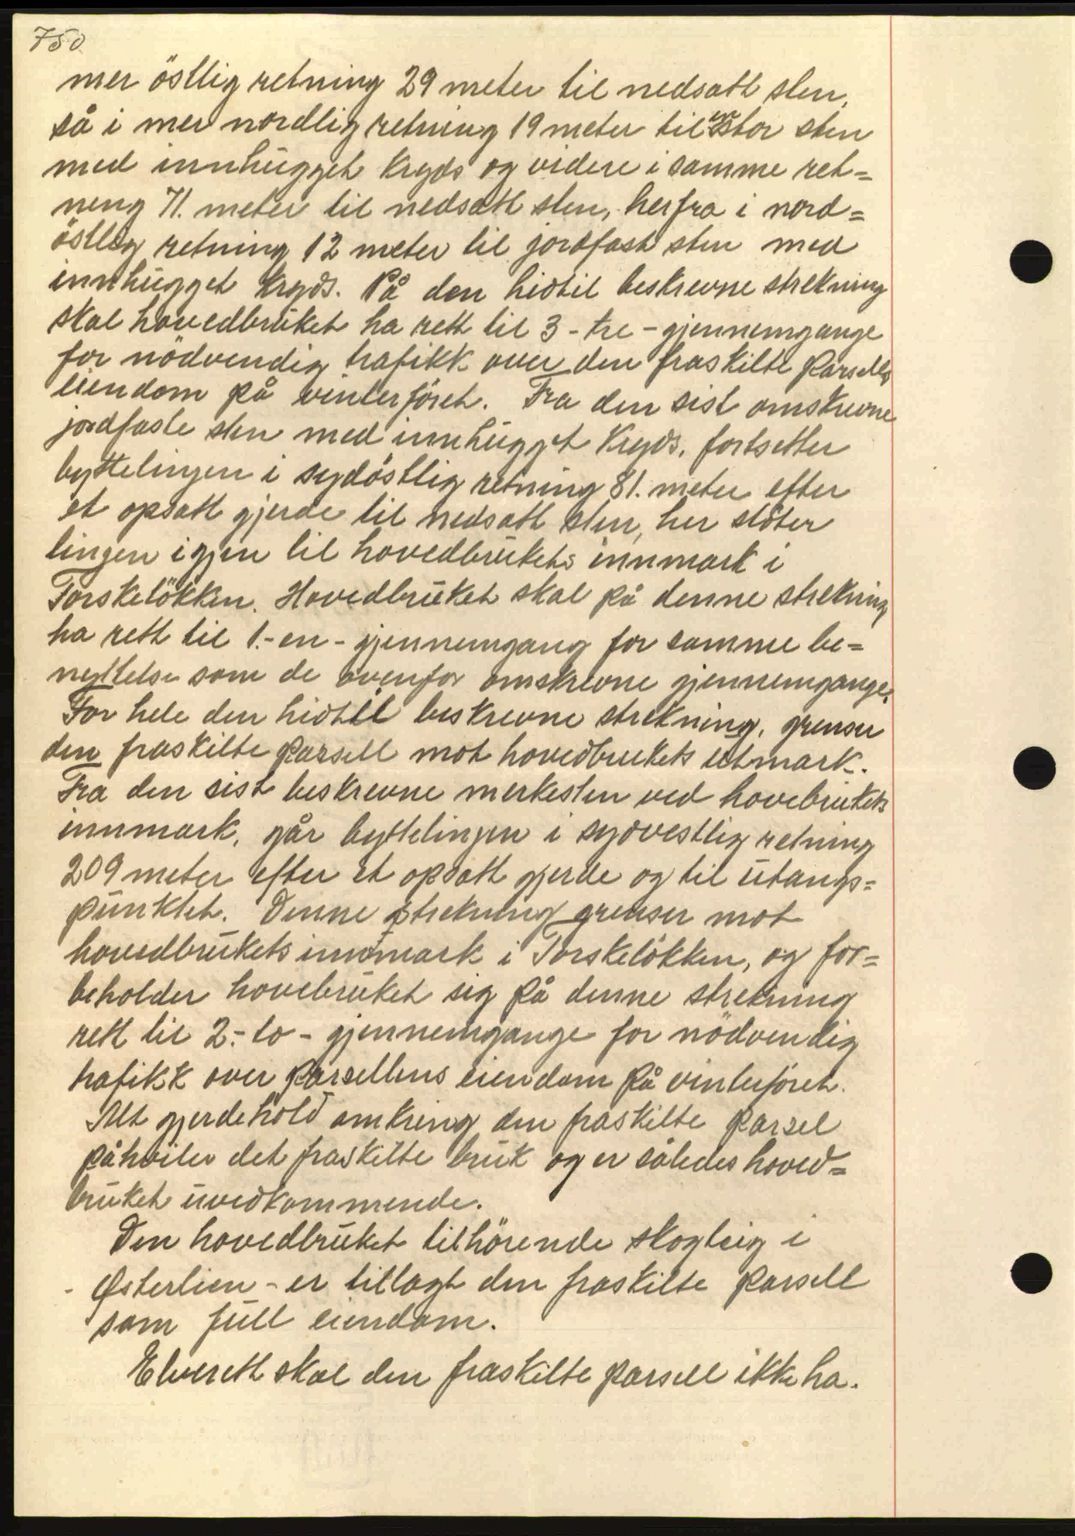 750
mer östlig retning 29 meter til nedsatt sten,
så i mer nordlig retning 19 meter til en stor sten
med innhugget Kryds og videre i samme ret=
ning 71. meter til nedsatt sten, herfra i nord=
östlig retning 12 meter til jordfast sten med
innhugget Kryds. På den hidtil beskrevne strekning
skal hovedbruket ha rett til 3 - tre - gjennemgange
for nödvendig trafikk over den fraskilte parsells
eiendom på vinterföret. Fra den sist omskrevne
jordfaste sten med innhugget Kryds, fortsetter
byttelinjen i sydöstlig retning 81. meter efter
et opsatt gjerde til nedsatt sten, her stöter
lingen igjen til hovedbrukets innmark i
Torskelökken. Hovedbruket skal på denne strekning
ha rett til 1.-en - gjennemgang for samme be=
nyttelse som de ovenfor omskrevne gjennemgange.
For hele den hidtil beskrevne strekning, grenser
den fraskilte parsell mot hovedbrukets utmark.
Fra den sist beskrevne merkesten ved hovebrukets
innmark, går byttelinjen i sydvestlig retning
209 meter efter et opsatt gjerde og til utangs=
punktet. Denne strekning grenser mot
hovedbrukets innmark i Torskelökken, og for=
beholder hovebruket sig på denne strekning
rett til 2.- to - gjennemgange for nödvendig
trafikk over parsellens eiendom på vinterföret.
Alt gjerdehold omkring den fraskilte parsel
påhviler det fraskilte bruk og er således hoved=
bruket uvedkommende.
Den hovedbruket tilhörende skogteig i
- Østerlien - er tillagt den fraskilte parsell
som full eiendom.
Elverett skal den fraskilte parsell ikke ha.